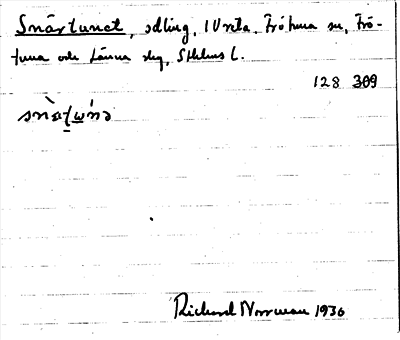 Snårtunet, odling, 1 Vreta, Frötuna sn, Frö-
tuna och Länna slg, Sthlms l.
128 309
Richard Norrman 1936